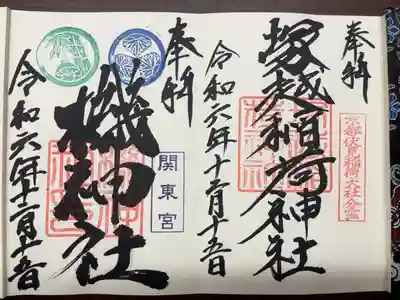 奉拝
塚越稲荷神社
京都伏見稲荷大社分霊
令和六年十二月十五日
奉拝
機神社
関東宮
令和六年十二月十五日